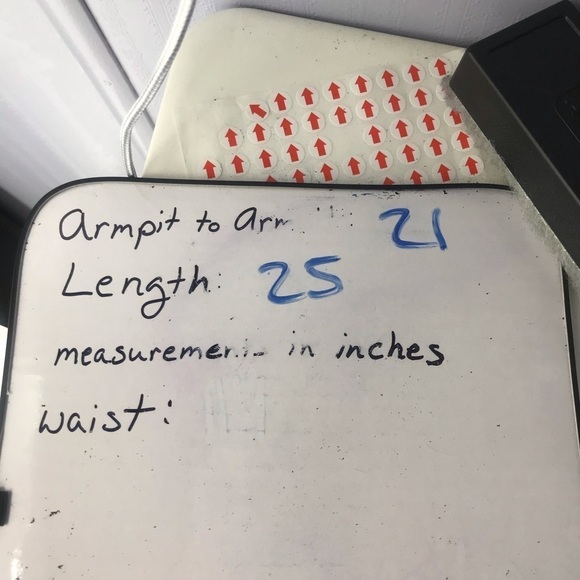 armpit to arm : 21
Length: 25
in inches
waist: